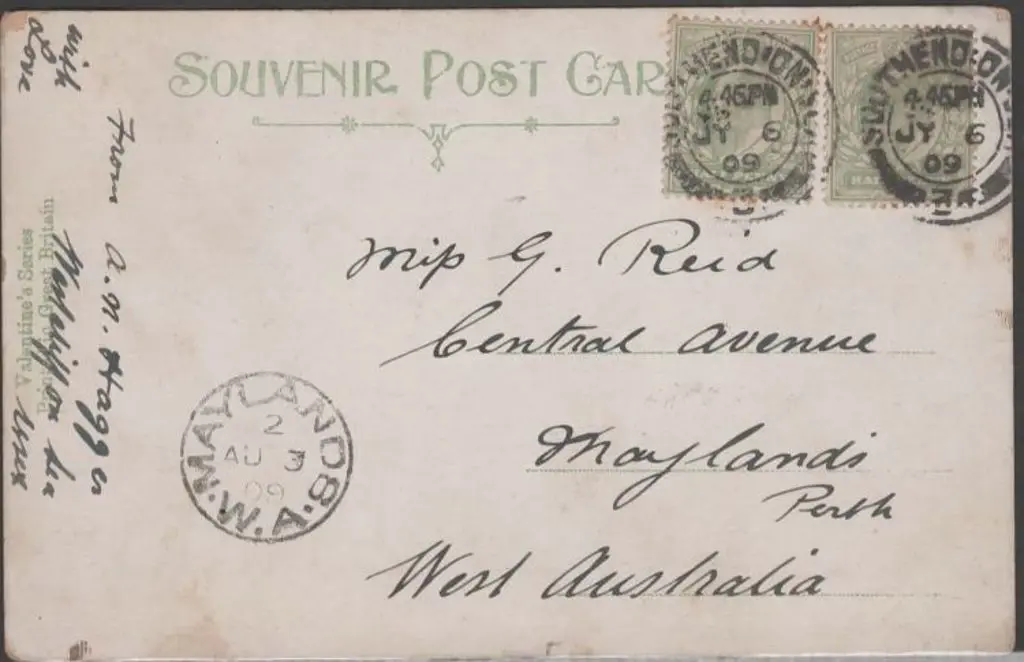 SOUVENIR POST CAR
SOUTHEND-ON
4.45PM
JY 6
09
SOUTHEND-ON
4.45PM
JY 6
09
HA
Miss G. Reid
Central Avenue
Maylands
Perth
West Australia
MAYLANDS
2
AU 3
09
W.A.
with
Love
From A. N. Hagger
Westcliff on Sea
Essex
Valentine's Series
Printed in Great Britain